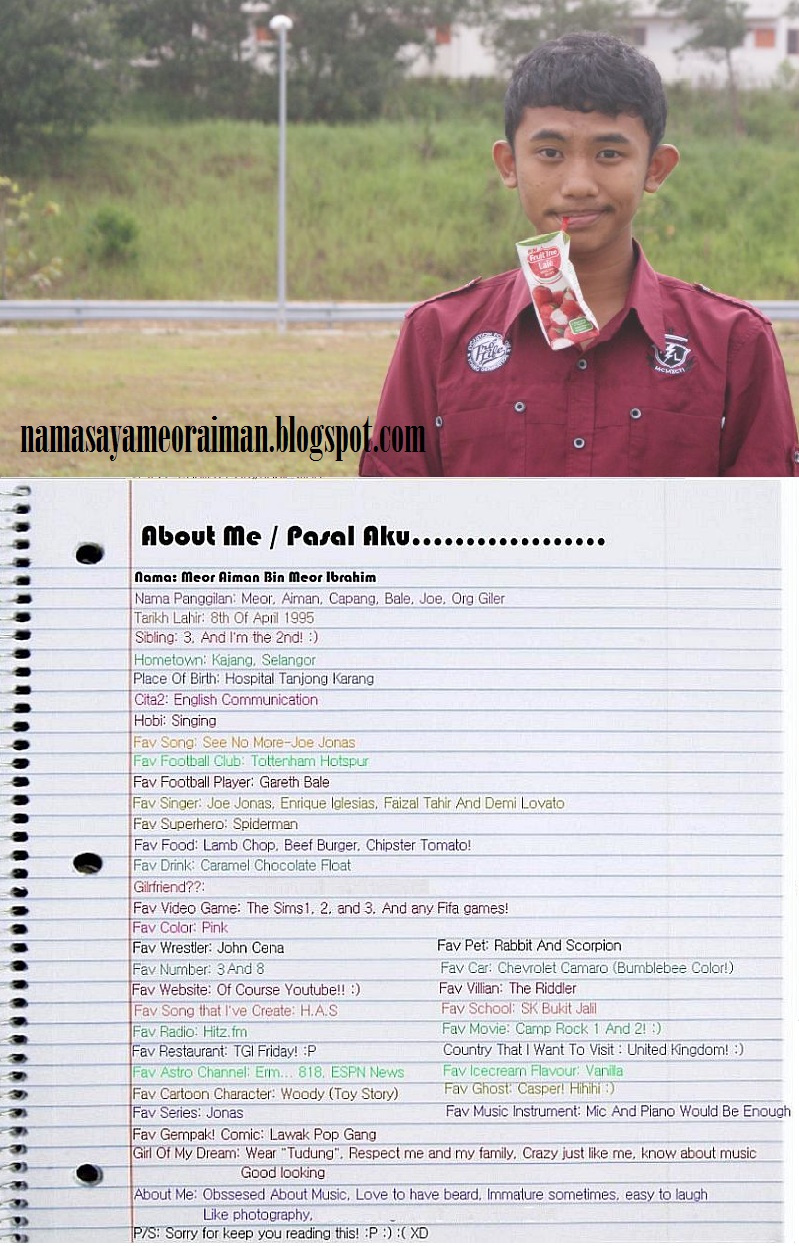 Fruit Tree
Laici
MCMXCVI
namasayameoraiman.blogspot.com
About Me / Pasal Aku..................
Nama: Meor Aiman Bin Meor Ibrahim
Nama Panggilan: Meor, Aiman, Capang, Bale, Joe, Org Giler
Tarikh Lahir: 8th Of April 1995
Sibling: 3, And I'm the 2nd! :)
Hometown: Kajang, Selangor
Place Of Birth: Hospital Tanjong Karang
Cita2: English Communication
Hobi: Singing
Fav Song: See No More-Joe Jonas
Fav Football Club: Tottenham Hotspur
Fav Football Player: Gareth Bale
Fav Singer: Joe Jonas, Enrique Iglesias, Faizal Tahir And Demi Lovato
Fav Superhero: Spiderman
Fav Food: Lamb Chop, Beef Burger, Chipster Tomato!
Fav Drink: Caramel Chocolate Float
Gilrfriend??:
Fav Video Game: The Sims1, 2, and 3, And any Fifa games!
Fav Color: Pink
Fav Wrestler: John Cena Fav Pet: Rabbit And Scorpion
Fav Number: 3 And 8 Fav Car: Chevrolet Camaro (Bumblebee Color!)
Fav Website: Of Course Youtube!! :) Fav Villian: The Riddler
Fav Song that I've Create: H.A.S Fav School: SK Bukit Jalil
Fav Radio: Hitz.fm Fav Movie: Camp Rock 1 And 2! :)
Fav Restaurant: TGI Friday! :P Country That I Want To Visit : United Kingdom! :)
Fav Astro Channel: Erm... 818, ESPN News Fav Icecream Flavour: Vanilla
Fav Cartoon Character: Woody (Toy Story) Fav Ghost: Casper! Hihihi :)
Fav Series: Jonas Fav Music Instrument: Mic And Piano Would Be Enough
Fav Gempak! Comic: Lawak Pop Gang
Girl Of My Dream: Wear "Tudung", Respect me and my family, Crazy just like me, know about music
Good looking
About Me: Obssesed About Music, Love to have beard, Immature sometimes, easy to laugh
Like photography,
P/S: Sorry for keep you reading this! :P :) :( XD